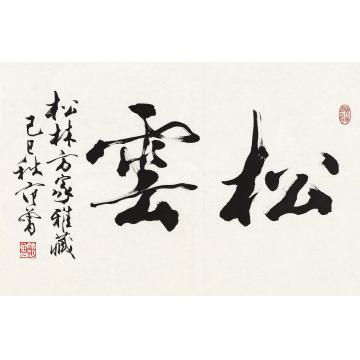 松雲
松林方家雅藏
己巳秋范曾